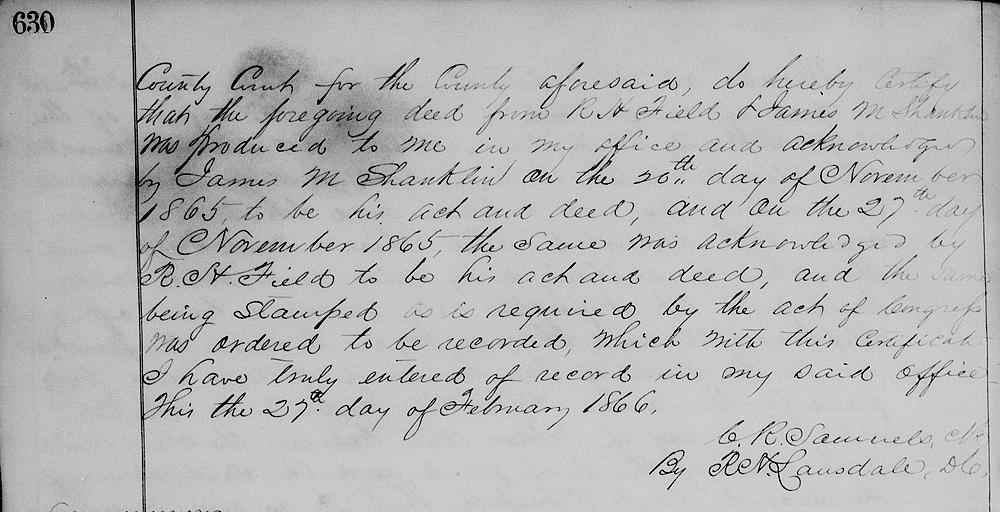 630
County Court for the County aforesaid, do hereby Certify
that the foregoing deed from R H Field & James M Shanklin
was produced to me in my office and acknowledged
by James M Shanklin on the 20th day of November
1865, to be his act and deed, and on the 27th day
of November 1865, the same was acknowledged by
R. H. Field to be his act and deed, and the same
being Stamped as is required by the act of Congress
was ordered to be recorded, which with this Certificate
I have truly entered of record in my said office
This the 27th day of February 1866.
C. R. Samuels, Clk
By R N Lansdale, D.C.